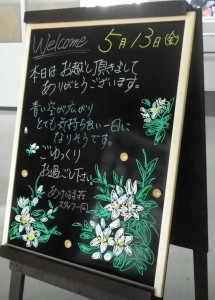 Welcome
5月13日(金)
本日はお越し頂きまして
ありがとうございます。
青い空が広がり
とても気持ち良い一日に
なりそうです。
ごゆっくり
お過ご下さい。
スタッフ一同